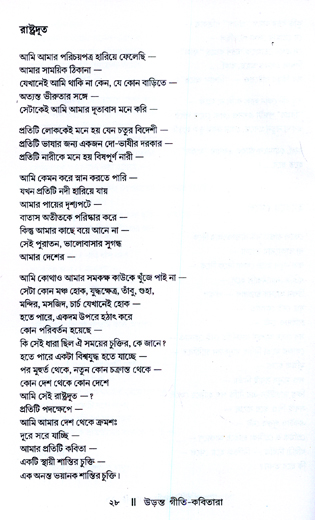 রাষ্ট্রদূত
আমি আমার পরিচয়পত্র হারিয়ে ফেলেছি —
আমার সাময়িক ঠিকানা —
যেখানেই আমি থাকি না কেন, যে কোন বাড়িতে —
অত্যন্ত ভীরুতার সঙ্গে —
সেটাকেই আমি আমার দূতাবাস মনে করি —
প্রতিটি লোককেই মনে হয় যেন চতুর বিদেশী —
প্রতিটি ভাষার জন্য একজন দো-ভাষীর দরকার —
প্রতিটি নারীকে মনে হয় বিষপূর্ণ নারী —
আমি কেমন করে স্নান করতে পারি —
যখন প্রতিটি নদী হারিয়ে যায়
আমার পায়ের দৃশ্যপটে —
বাতাস অতীতকে পরিষ্কার করে —
কিন্তু আমার কাছে বয়ে আনে না —
সেই পুরাতন, ভালোবাসার সুগন্ধ
আমার দেশের —
আমি কোথাও আমার সমকক্ষ কাউকে খুঁজে পাই না —
সেটা কোন মঞ্চ হোক, যুদ্ধক্ষেত্র, তাঁবু, গুহা,
মন্দির, মসজিদ, চার্চ যেখানেই হোক —
হতে পারে, একদম উপরে হঠাৎ করে
কোন পরিবর্তন হয়েছে —
কি সেই ধারা ছিল ঐ সময়ের চুক্তির, কে জানে?
হতে পারে একটা বিশ্বযুদ্ধ হতে যাচ্ছে —
পর মুহূর্ত থেকে, নতুন কোন চক্রান্ত থেকে —
কোন দেশ থেকে কোন দেশে
আমি সেই রাষ্ট্রদূত — ?
প্রতিটি পদক্ষেপে —
আমি আমার দেশ থেকে ক্রমশঃ
দূরে সরে যাচ্ছি —
আমার প্রতিটি কবিতা —
একটি স্থায়ী শান্তির চুক্তি —
এক অনন্ত ভয়ানক শান্তির চুক্তি।
২৮ || উড়ন্ত গীতি-কবিতারা